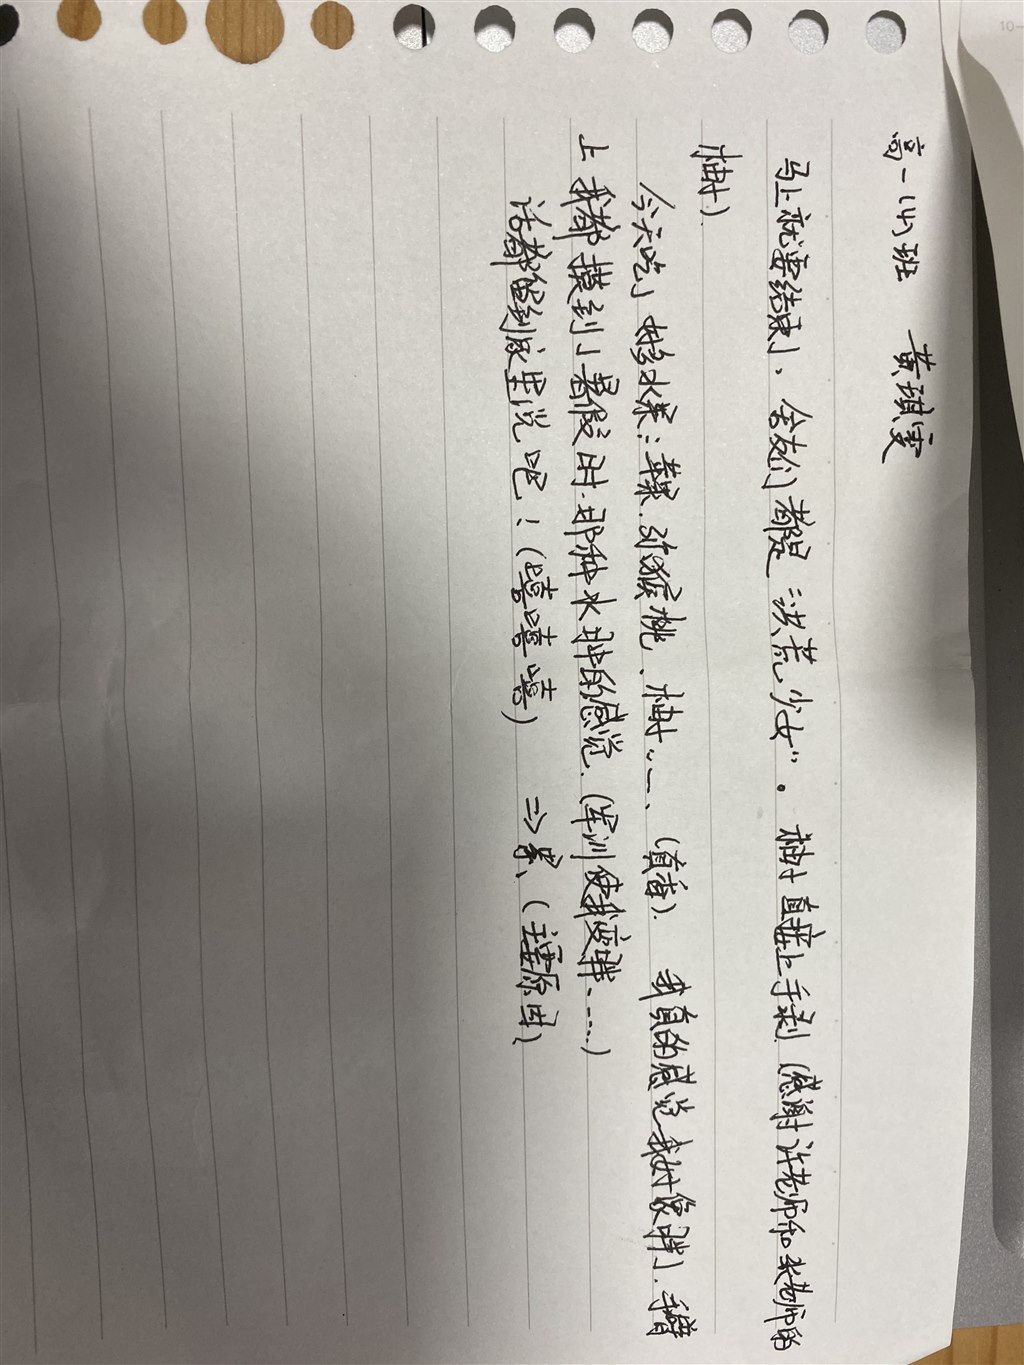 高一(4)班 黄琪雯
马上就要结束了、舍友们都是“洪荒少女”。柚子直接上手剥(感谢许老师和张老师的
柚子)
今天吃了好多水果:苹果、弥猴桃、柚子、、、(真香). 我真的感觉我好像胖了.手臂
上我都摸到了暑假时.那种水肿的感觉、(军训使我变胖、....)
话都留到家里说吧!(嘻嘻嘻) ⇒累、(主要原因)
10-